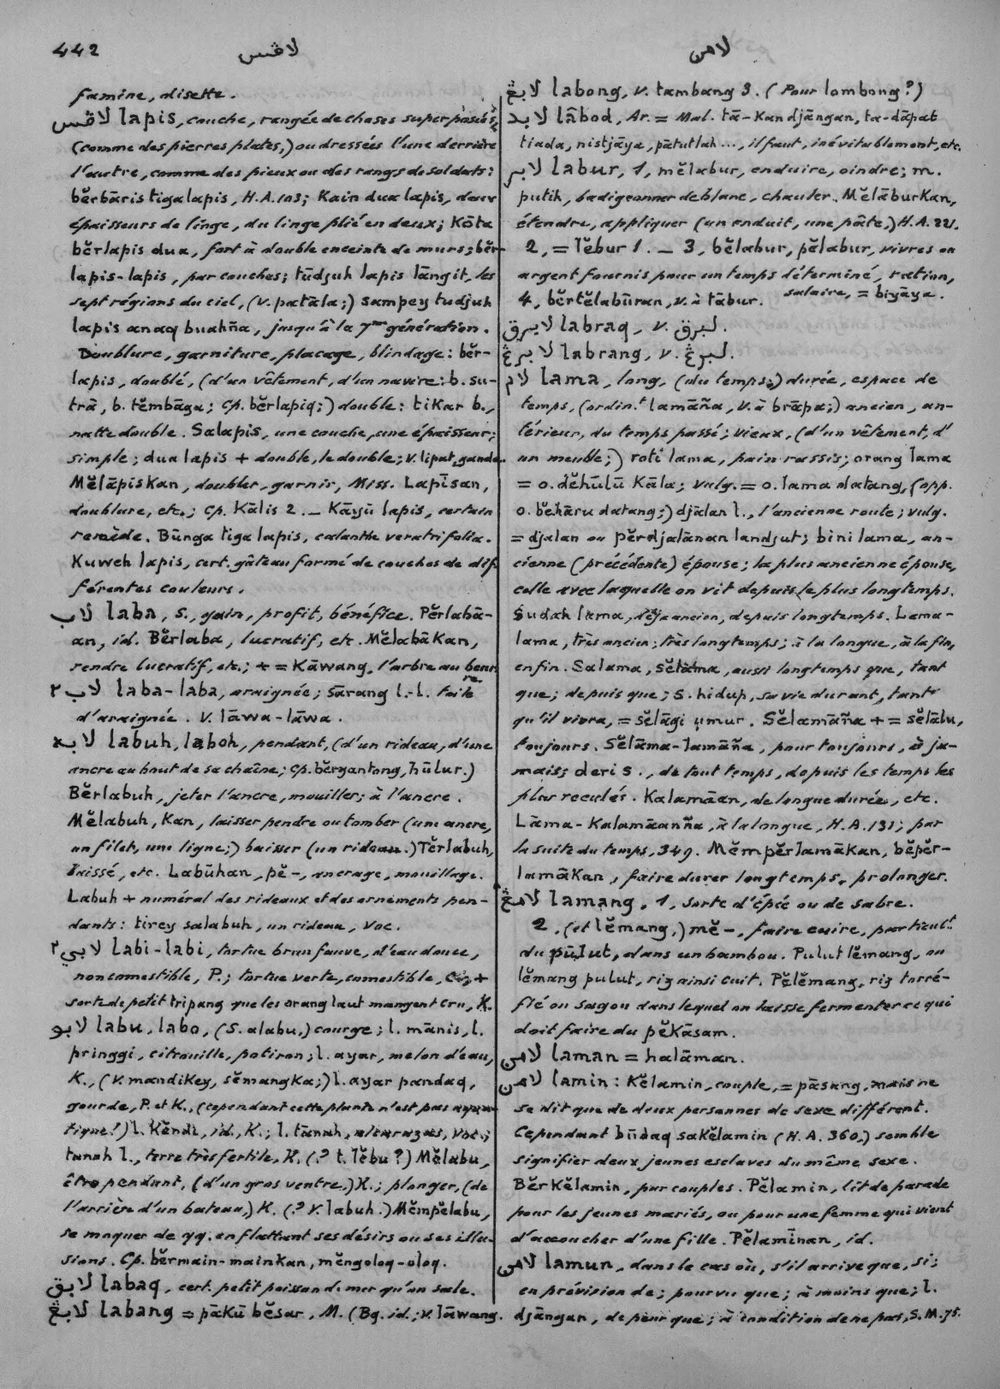 442 لاڤس لامن
famine, disette.
لاڤس lapis, couche, rangée de choses superposées,
(comme des pierres plates,) ou dressées l'une derrière
l'autre, comme des pieux ou des rangs de soldats:
bĕrbāris tiga lapis, H.A. 103; Kain dua lapis, deux
épaisseurs de linge, du linge plié en deux; Kōta
bĕrlapis dua, fort à double enceinte de murs; bĕr-
lapis-lapis, par couches; tūdjuh lapis lāngit, les
sept régions du ciel, (v. patāla;) sampey tudjuh
lapis anaq buahña, jusqu'à la 7me génération.
Doublure, garniture, placage, blindage: bĕr-
lapis, doublé, (d'un vêtement, d'un navire: b. su-
trā, b. tĕmbāga; Cp. bĕrlapiq;) double: tikar b.,
natte double. Salapis, une couche, une épaisseur;
simple; dua lapis + double, le double; v. lipat, ganda.
Mĕlāpiskan, doubler, garnir, Miss. Lapīsan,
doublure, etc.; Cp. Kālis 2. _ Kāyū lapis, certain
remède. Būnga tiga lapis, calanthe veratrifolia.
Kuweh lapis, cert. gâteau formé de couches de dif-
férentes couleurs.
لاب laba, S., gain, profit, bénéfice. Pĕrlabā-
an, id. Bĕrlaba, lucratif, etc. Mĕlabākan,
rendre lucratif, etc.; + = Kāwang, l'arbre au beurre.
لاب٢ laba-laba, araignée; Sārang l.-l. toile
d'araignée. V. lāwa-lāwa.
لابه labuh, laboh, pendant, (d'un rideau, d'une
ancre au bout de sa chaîne; cp. bĕrgantong, hūlur.)
Bĕrlabuh, jeter l'ancre, mouiller; à l'ancre.
Mĕlabuh, Kan, laisser pendre ou tomber (une ancre,
un filet, une ligne;) baisser (un rideau.) Tĕrlabuh,
baissé, etc. Labūhan, pĕ-, ancrage, mouillage.
Labuh + numéral des rideaux et des ornements pen-
dants: tirey salabuh, un rideau, Voc.
لابي٢ labi-labi, tortue brun fauve, d'eau douce,
non comestible, P.; tortue verte, comestible, +
sorte de petit tripang que les orang laut mangent cru, K.
لابو labu, labo, (S. alabu,) courge; l. mānis, l.
pringgi, citrouille, potiron; l. ayar, melon d'eau,
K., (v. mandikey, sĕmangka;) l. ayar pandaq,
gourde, P. et K., (cependant cette plante n'est pas
!) l. Kĕndi, id., K.; l. tānah, Voc.;
tanah l., terre très fertile, K. (? t. lĕbu?) Mĕlabu,
être pendant, (d'un gros ventre,) K.; plonger, (de
l'arrière d'un bateau,) K. (? v. labuh.) Mĕmpĕlabu,
se moquer de qq. en flattant ses désirs ou ses illu-
sions. Cp. bĕrmain-mainkan, mĕngoloq-oloq.
لابق labaq, cert. petit poisson de mer qu'on sale.
لابڠ labang = pākū bĕsar, M. (Bg. id.; v. lāwang.
لابڠ labong, v. tambang 3. (Pour lombong?)
لابد lâbod, Ar. = Mal. tā-kan djāngan, ta-dāpat
tiada, nistjāya, pātutlah..., il faut, inévitablement, etc.
لابر labur, 1, mĕlabur, enduire, oindre; m.
putih, badigeonner de blanc, chauler. Mĕlāburkan,
étendre, appliquer (un enduit, une pâte,) H.A. 221.
2, = lĕbur 1. _ 3, bĕlabur, pĕlabur, vivres ou
argent fournis pour un temps déterminé, ration,
salaire, = biyāya.
4, bĕrtĕlabūran, v. à tābur.
لابرق labraq, v. لبرق.
لابرڠ labrang, v. لبرڠ.
لام lama, long, (du temps;) durée, espace de
temps, (ordin.t lamāña, v. à brāpa;) ancien, an-
térieur, du temps passé; vieux, (d'un vêtement, d'
un meuble;) roti lama, pain rassis; orang lama
= o. dĕhūlū Kāla; vulg. = o. lama datang, (opp.
o. bĕhāru datang;) djālan l., l'ancienne route; vulg.
= djalan ou pĕrdjalānan landjut; bini lama, an-
cienne (précédente) épouse; la plus ancienne épouse,
celle avec laquelle on vit depuis le plus longtemps.
Sudah lama, déjà ancien, depuis longtemps. Lama-
lama, très ancien; très longtemps; à la longue, à la fin,
enfin. Salama, sĕlāma, aussi longtemps que, tant
que; depuis que; s. hidup, sa vie durant, tant
qu'il vivra, = sĕlāgi umur. Sĕlamāña + = sĕlālu,
toujours. Sĕlāma-lamāña, pour toujours, à ja-
mais; deri s., de tout temps, depuis les temps les
plus reculés. Kalamāan, de longue durée, etc.
Lāma-Kalamāanña, à la longue, H.A. 131; par
la suite du temps, 349. Mĕmpĕrlamākan, bĕpĕr-
lamākan, faire durer longtemps, prolonger.
لامڠ lamang, 1, sorte d'épée ou de sabre.
2, (et lĕmang,) mĕ-, faire cuire, particult
du pūlut, dans un bambou. Pulut lĕmang, ou
lĕmang pulut, riz ainsi cuit. Pĕlĕmang, riz torré-
fié ou sagou dans lequel on laisse fermenter ce qui
doit faire du pĕkāsam.
لامن laman = halāman.
لامن lamin: Kĕlamin, couple, = pāsang, mais ne
se dit que de deux personnes de sexe différent.
Cependant būdaq sakĕlamin (H.A. 360,) semble
signifier deux jeunes esclaves du même sexe.
Bĕrkĕlamin, par couples. Pĕlamin, lit de parade
pour les jeunes mariés, ou pour une femme qui vient
d'accoucher d'une fille. Pĕlamīnan, id.
لامن lamun, dans le cas où, s'il arrive que, si;
en prévision de; pourvu que; à moins que; l.
djāngan, de peur que; à condition de ne pas, S.M. 75.